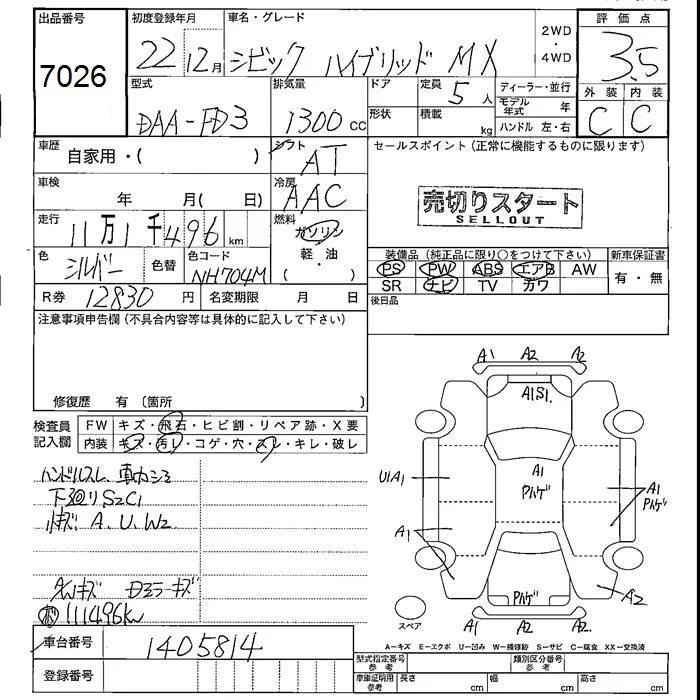 出品番号
7026
初度登録年月
22 12月
車名・グレード
シビック ハイブリッド MX
2WD
・
4WD
評価点
3.5
外装 内装
C C
型式
DAA-FD3
排気量
1300cc
ドア
定員
5人
形状
積載
kg
ディーラー・並行
モデル年式 年
ハンドル 左・右
車歴
自家用・( )
シフト
AT
車検
年 月( 日)
冷房
AAC
走行
11万1千496km
燃料
ガソリン
軽・油
( )
色
シルバー
色替
色コード
NH704M
R券 12830 円
名変期限 月 日
セールスポイント(正常に機能するものに限ります)
売切りスタート
SELLOUT
装備品(純正品に限り○をつけて下さい)
PS PW ABS エアB AW
SR ナビ TV カワ
新車保証書
有・無
後日品
注意事項申告欄(不具合内容等は具体的に記入して下さい)
修復歴 有 〔箇所 〕
検査員
記入欄
FW キズ・飛石・ヒビ割・リペア跡・X要
内装 キズ・汚レ・コゲ・穴・スレ・キレ・破レ
ハンドルスレ
下廻りS2C1
小キズ A.U.W2
キズ
111496km
A1 A2 A2
A1S1
U1A1
A1
Pハゲ
A1
Pハゲ
A1
Pハゲ
A2
A1 A2 A2
スペア
A-キズ E-エクボ U-凹み W-補修跡 S-サビ C-腐食 XX-交換済
車台番号
1405814
登録番号
型式指定番号
参考
類別区分番号
参考
車庫証明用
参考
長さ cm
幅 cm
高さ cm